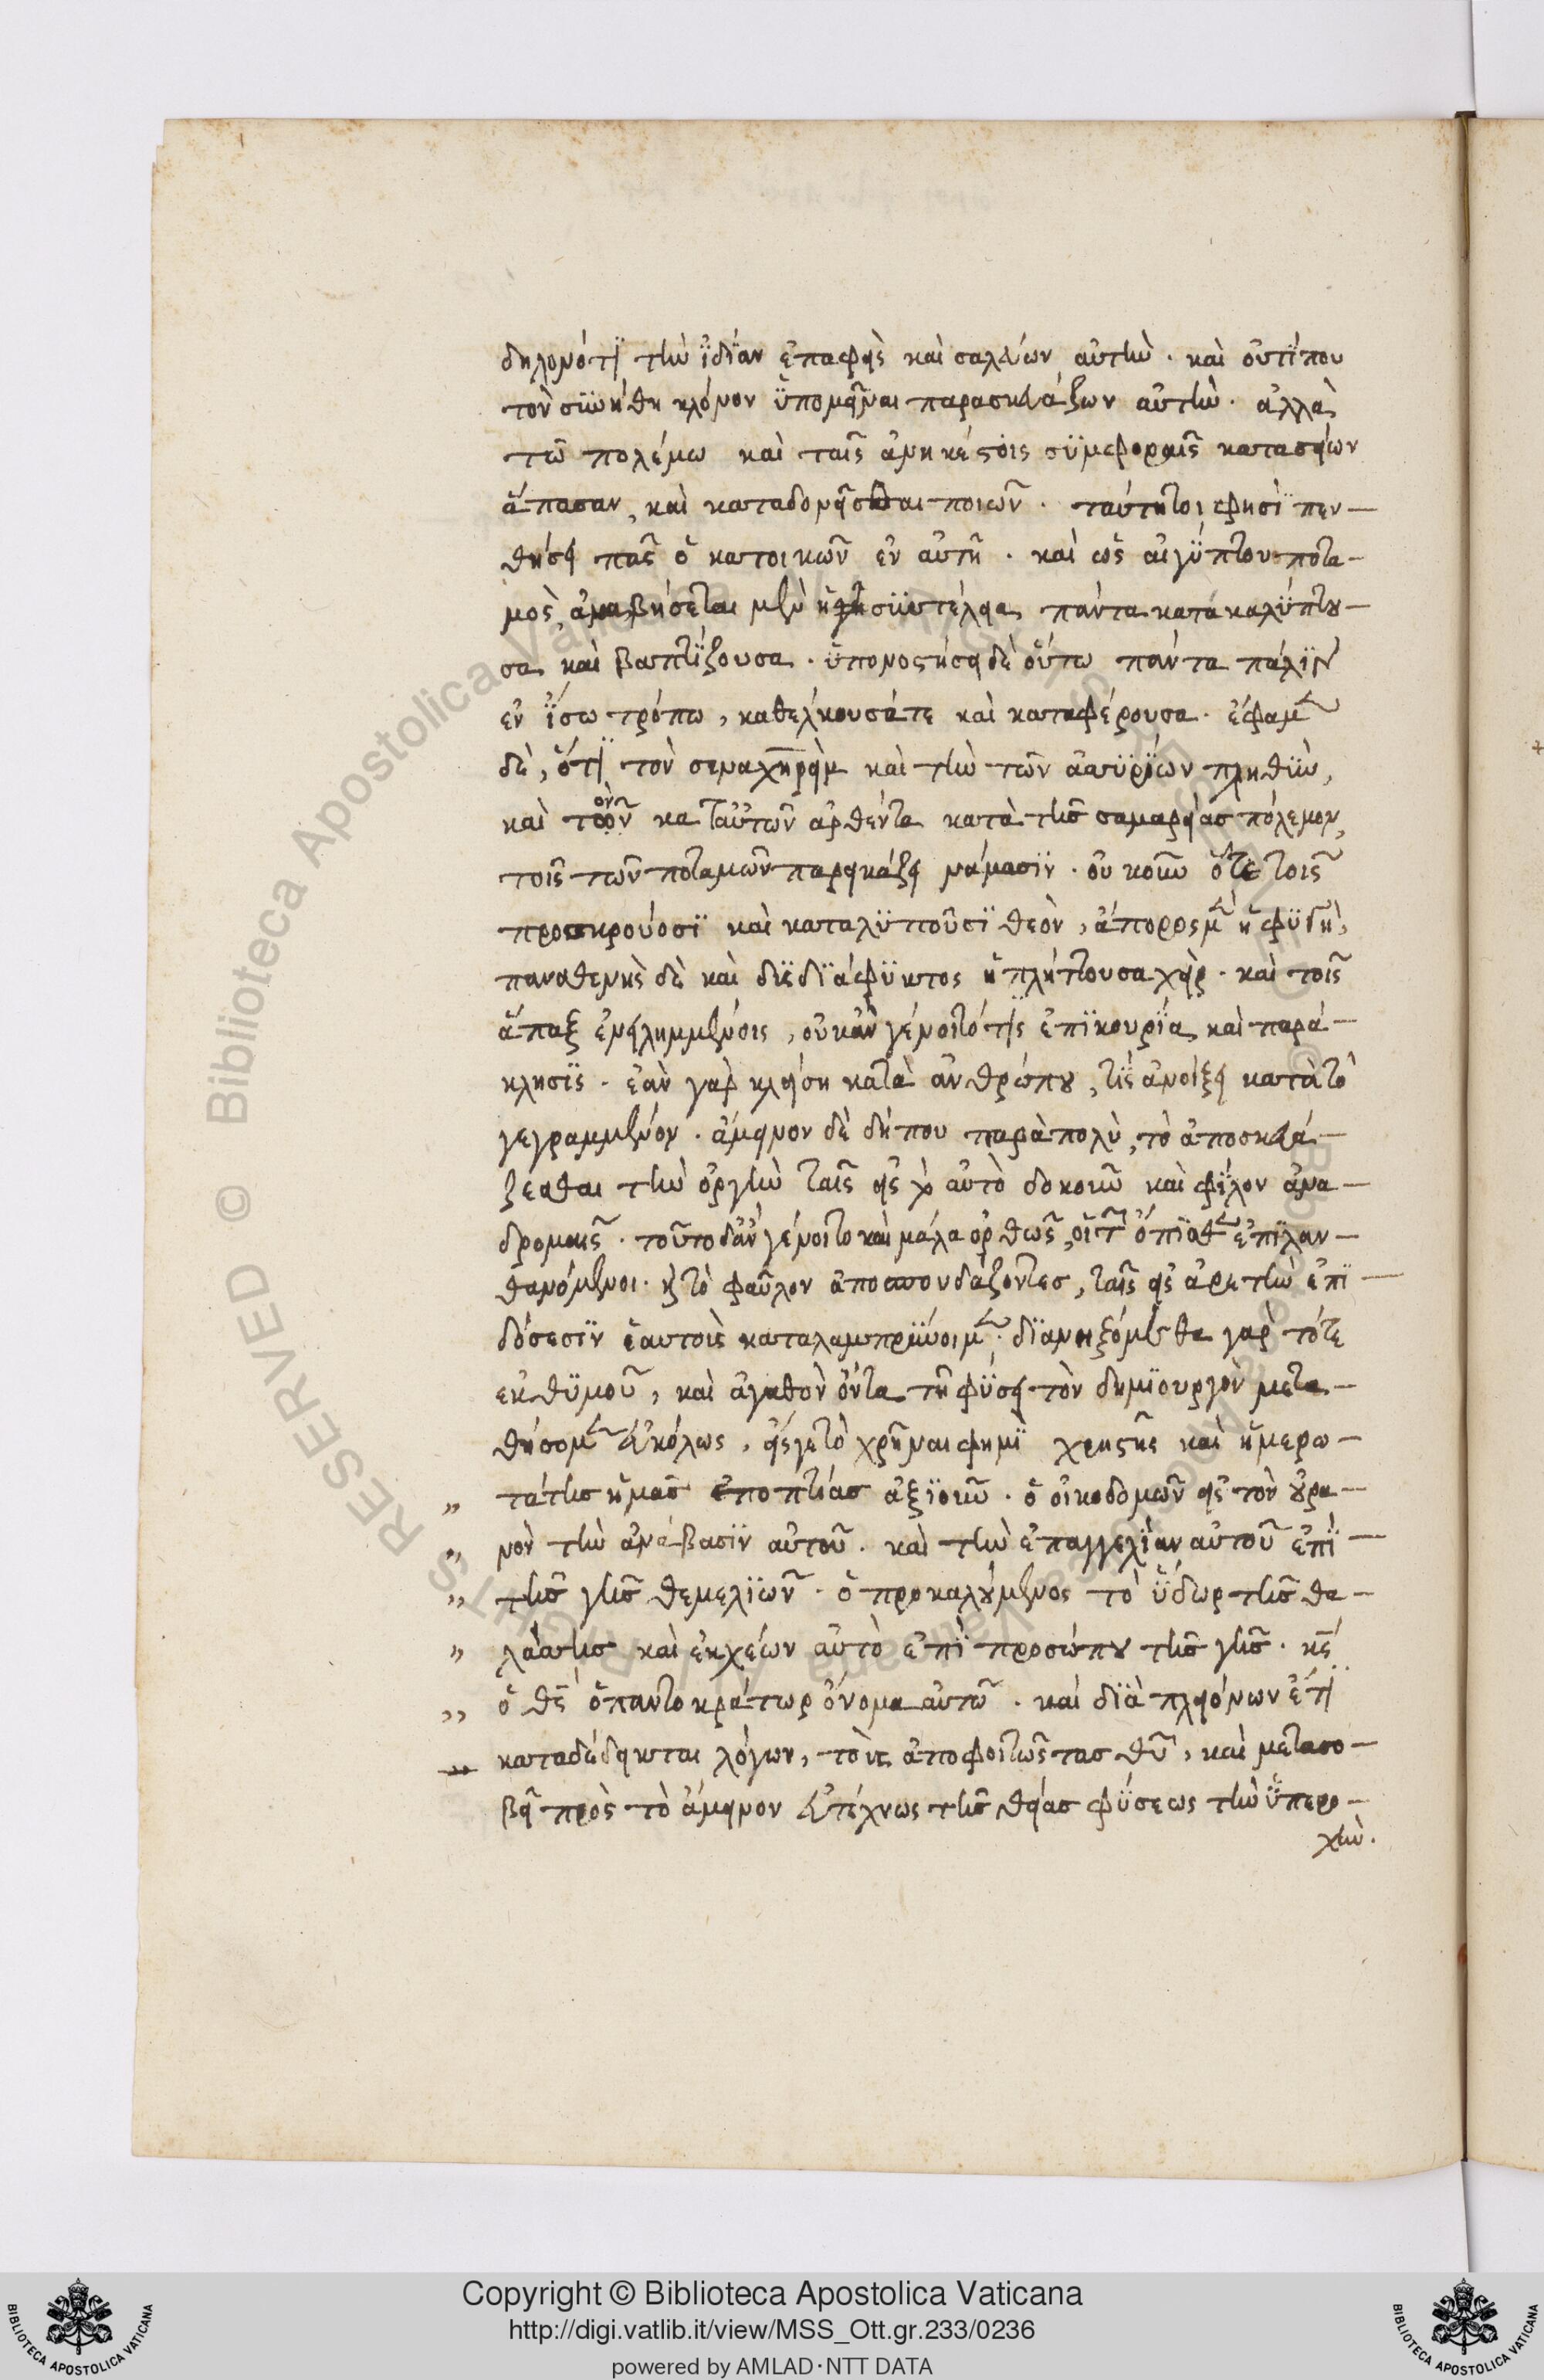 δηλονότϊ τὴν ἰδΐαν ἐπαφεὶς καὶ σαλεύων αὐτὴν . καὶ οὐτΐπου
τὸν συνήθη κλόνον ὑπομεῖναι παρασκευάζων αὐτὴν . ἀλλὰ
τῶ πολέμω καὶ ταῖς ἀνηκέστοις συμφοραῖς κατασείων
ἅπασαν, καὶ καταδονεῖσθαι ποιῶν . ταύτητοι φησὶ πεν-
θήσει πᾶς ὁ κατοικῶν ἐν αὐτῆ . καὶ ὡς αἰγύπτου ποτα-
μὸς ἀναβήσεται μὲν ἡ συντέλεια, πάντα κατακαλύπτου-
σα καὶ βαπτΐζουσα . ὑπονοστήσει δὲ οὕτω πάντα πάλιν
ἐν ἴσω τρόπω, καθελκουσάτε καὶ καταφέρουσα . ἔφαμεν
δὲ, ὅτϊ τὸν σεναχηρεὶμ καὶ τὴν τῶν ἀσσυρΐων πληθὺν,
καὶ τὸν κατ αὐτῶν ἀρθέντα κατὰ τῆς σαμαρείας πόλεμον,
τοῖς τῶν ποταμῶν παρεικάζει νάμασϊν . οὐκοῦν ὅτε τοῖς
προσκρούοσϊ καὶ καταλυποῦσϊ θεὸν, ἄπορος μὲν ἡ φυγὴ,
παναθενὴς δὲ καὶ δϊεδϊάφυκτος ἡ πλήττουσα χεὶρ . καὶ τοῖς
ἅπαξ ἐνειλημμένοις, οὐκἂν γένοιτό τϊς ἐπϊκουρΐα καὶ παρά-
κλησϊς . ἐὰν γὰρ κλείση κατὰ ἀνθρώπου, τΐς ἀνοίξει κατὰ τὸ
γεγραμμένον . ἄμεινον δὲ δήπου παρὰπολὺ, τὸ ἀποσκευά-
ζεσθαι τὴν ὀργὴν ταῖς εἰς τὸ αὐτὸ δοκοῦν καὶ φΐλον ἀνα-
δρομαῖς . τοῦτο δ ἂν γένοιτο καὶ μάλα ὀρθῶς, εἰ τῶν ὄπϊσθεν ἐπϊλαν-
θανόμενοι . καὶ τὸ φαῦλον ἀποσπουδάζοντες, ταῖς εἰς ἀρετὴν ἐπϊ
δόσεσϊν ἑαυτοὺς καταλαμπρύνοιμεν . δϊανηξόμεθα γὰρ τότε
ἐκθυμοῦ, καὶ ἀγαθὸν ὄντα τῆ φύσει τὸν δημϊουργὸν μετα-
θήσομεν εὐκόλως, εἴγε τὸ χρῆναι φημὶ χρηστῆς καὶ ἡμερω-
τάτης ἡμᾶς ἐποπτείας ἀξϊοῦν . ὁ οἰκοδομῶν εἰς τὸν οὐρα-
νὸν τὴν ἀνάβασϊν αὐτοῦ . καὶ τὴν ἐπαγγελΐαν αὐτοῦ ἐπὶ
τῆς γῆς θεμελϊῶν . ὁ προκαλούμενος τὸ ὕδωρ τῆς θα-
λάσσης καὶ ἐκχέων αὐτὸ ἐπὶ προσώπου τῆς γῆς . κς
ὁ θς ὁ παντοκράτωρ ὄνομα αὐτῶ . καὶ δϊὰ πλειόνων ἔτϊ
καταδέδεικται λόγων, τοῖς ἀποφοιτῶστας θυ, καὶ μετασο-
βεῖ πρὸς τὸ ἄμεινον εὐτέχνως τῆς θείας φύσεως τὴν ὑπερο-
χὴν .
Copyright © Biblioteca Apostolica Vaticana
http://digi.vatlib.it/view/MSS_Ott.gr.233/0236
powered by AMLAD·NTT DATA